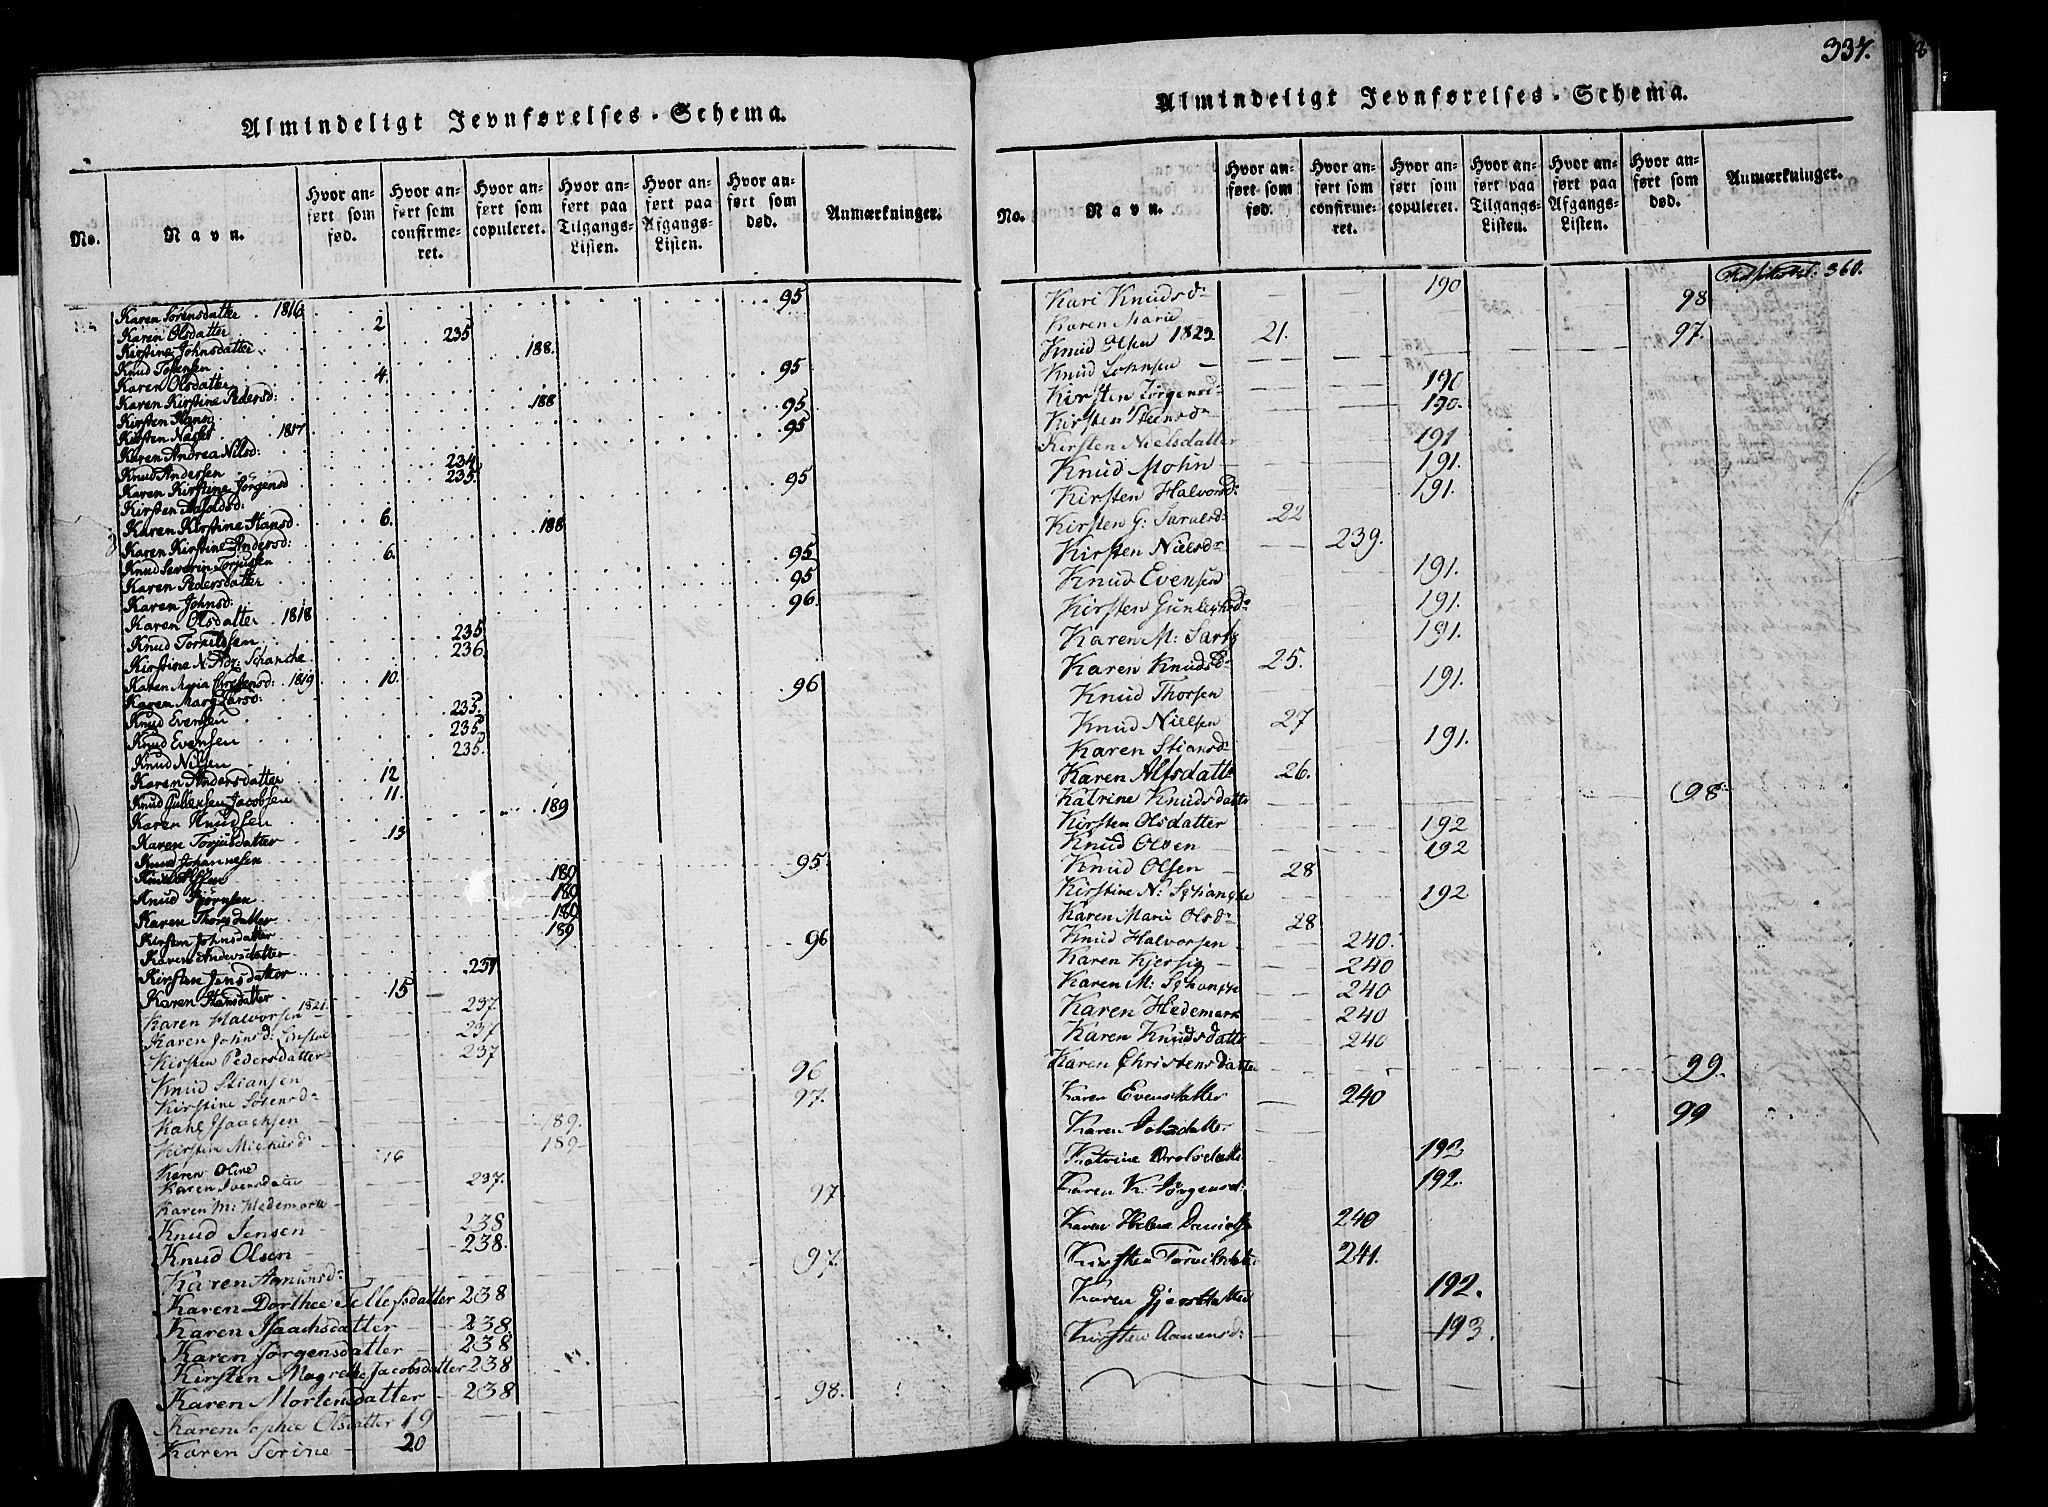 Almindeligt Jevnførelses-Schema.
No.
Navn.
Hvor an-
ført som
fød.
Hvor an-
ført som
confirme-
ret.
Hvor an-
ført som
copuleret.
Hvor an-
ført paa
Tilgangs-
Listen.
Hvor an-
ført paa
Afgangs-
Listen.
Hvor an-
ført som
død.
Anmærkninger.
Karen Sørensdatter 1816 95
Karen Olsdatter 2
Kirstine Johnsdatter 235
Knud 188.
Karen Olsdatter 4. 95
Karen Kirstine Pedersd:
Kirsten 188 95
Kirsten 1817 95
Karen Andrea Nilsd:
Knud Andersen 234
Karen Kirstine Jörgensd 235. 95
Kirsten
Karen Kirstine Hansd. 6. 188
Karen Kirstine Andersd:
Knud Severin 6. 95
Karen Pedersdatter 95
Karen Johnsd: 96.
Karen Olsdatter 1818
Knud 235
Kirstine N. Schanche 236.
Karen Maria Christensd: 1819 10. 96
Karen Marg Larsd:
Knud Evensen 235.
Knud Evensen 235
Knud Nilsen 235.
Karen Andersdatter 12
Knud Gullersen Jacobsen 11.
Karen Knudsen 189
Karen Torjusdatter 13
Knud Johannesen 95
Knud 189
Knud Björnsen 189
Karen Thorsdatter 189
Kirsten Johnsdatter 189
Karen Andersdatter 96
Kirsten Jensdatter 237
Karen Hansdatter 15
Karen Halvorsen 1821 237.
Karen Johnsd: 237
Kirsten Pedersdatter 237
Knud Stiansen 96
Kirstine 97.
Kahl Isaachsen 189.
Kirstine 189
Karen Oline 16
Karen Iversdatter 237.
Karen M: Hedemark 97
Knud Jensen 238
Knud Olsen 238.
Karen Amunsd: 97.
Karen Dorthee Tellefsdatter 238
Karen Isaachsdatter 238
Karen Jörgensdatter 238
Kirsten Magrethe Jacobsdatter 238
Karen Mortensdatter 238 98.
Karen Sophie Olsdatter 19
Karen Serine 20
337.
Almindeligt Jevnførelses-Schema.
No.
Navn.
Hvor an-
ført som
fød.
Hvor an-
ført som
confirme-
ret.
Hvor an-
ført som
copuleret.
Hvor an-
ført paa
Tilgangs-
Listen.
Hvor an-
ført paa
Afgangs-
Listen.
Hvor an-
ført som
død.
Anmærkninger.
360.
Kari Knudsd 190
Karen Marie 98
Knud Olsen 1823 21. 97.
Knud Johnsen
Kirsten Jörgensd 190
Kirsten Steensd 190.
Kirsten Nielsdatter 191
Knud Mohn 191.
Kirsten Halvorsd: 191.
Kirsten G: 22
Kirsten Nielsd 239.
Knud Evensen 191.
Kirsten 191.
Karen M: 191.
Karen Knudsd 25.
Knud Thorsen 191.
Knud Nielsen 27
Karen Stiansd 191.
Karen Alfsdatt 26.
Katrine Knudsdatter 98
Kirsten Olsdatter 192
Knud Olsen 192
Knud Olsen 28
Kirstine N: 192
Karen Marie Olsd 28
Knud Halvorsen 240.
Karen 240
Karen M: 240
Karen Hedemark 240
Karen Knudsdatt 240
Karen Christensdatter 99.
Karen Evensdatter 240
Karen 99
Katrine 192
Karen K: Jörgensd: 192.
Karen Helene 240
Kirsten 241.
Karen 192.
Kirsten 193.